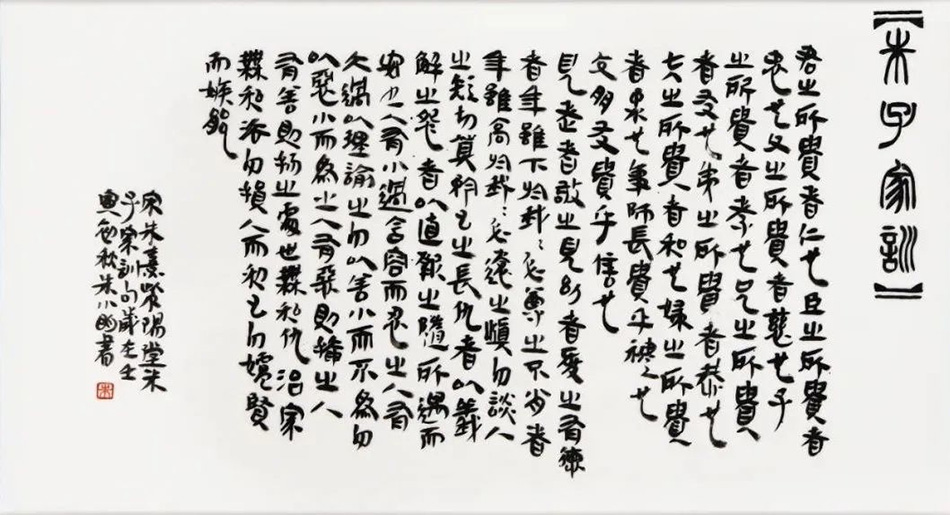 【朱子家訓】
君之所貴者仁也臣之所貴者
忠也父之所貴者慈也子
之所貴者孝也兄之所貴
者友也弟之所貴者恭也
夫之所貴者和也婦之所貴
者柔也事師長貴乎禮也
交朋友貴乎信也
見老者敬之見幼者愛之有德
者年雖下於我我必尊之不肖者
年雖高於我我必遠之慎勿談人
之短切莫矜己之長仇者以義
解之怨者以直報之隨所遇而
安之人有小過含容而忍之人有
大過以理諭之勿以善小而不為勿
以惡小而為之人有惡則掩之人
有善則揚之處世無私仇治家
無私法勿損人而利己勿妒賢
而嫉能
宋朱熹紫陽堂朱
子家訓句歲在壬
寅秋朱小書
朱